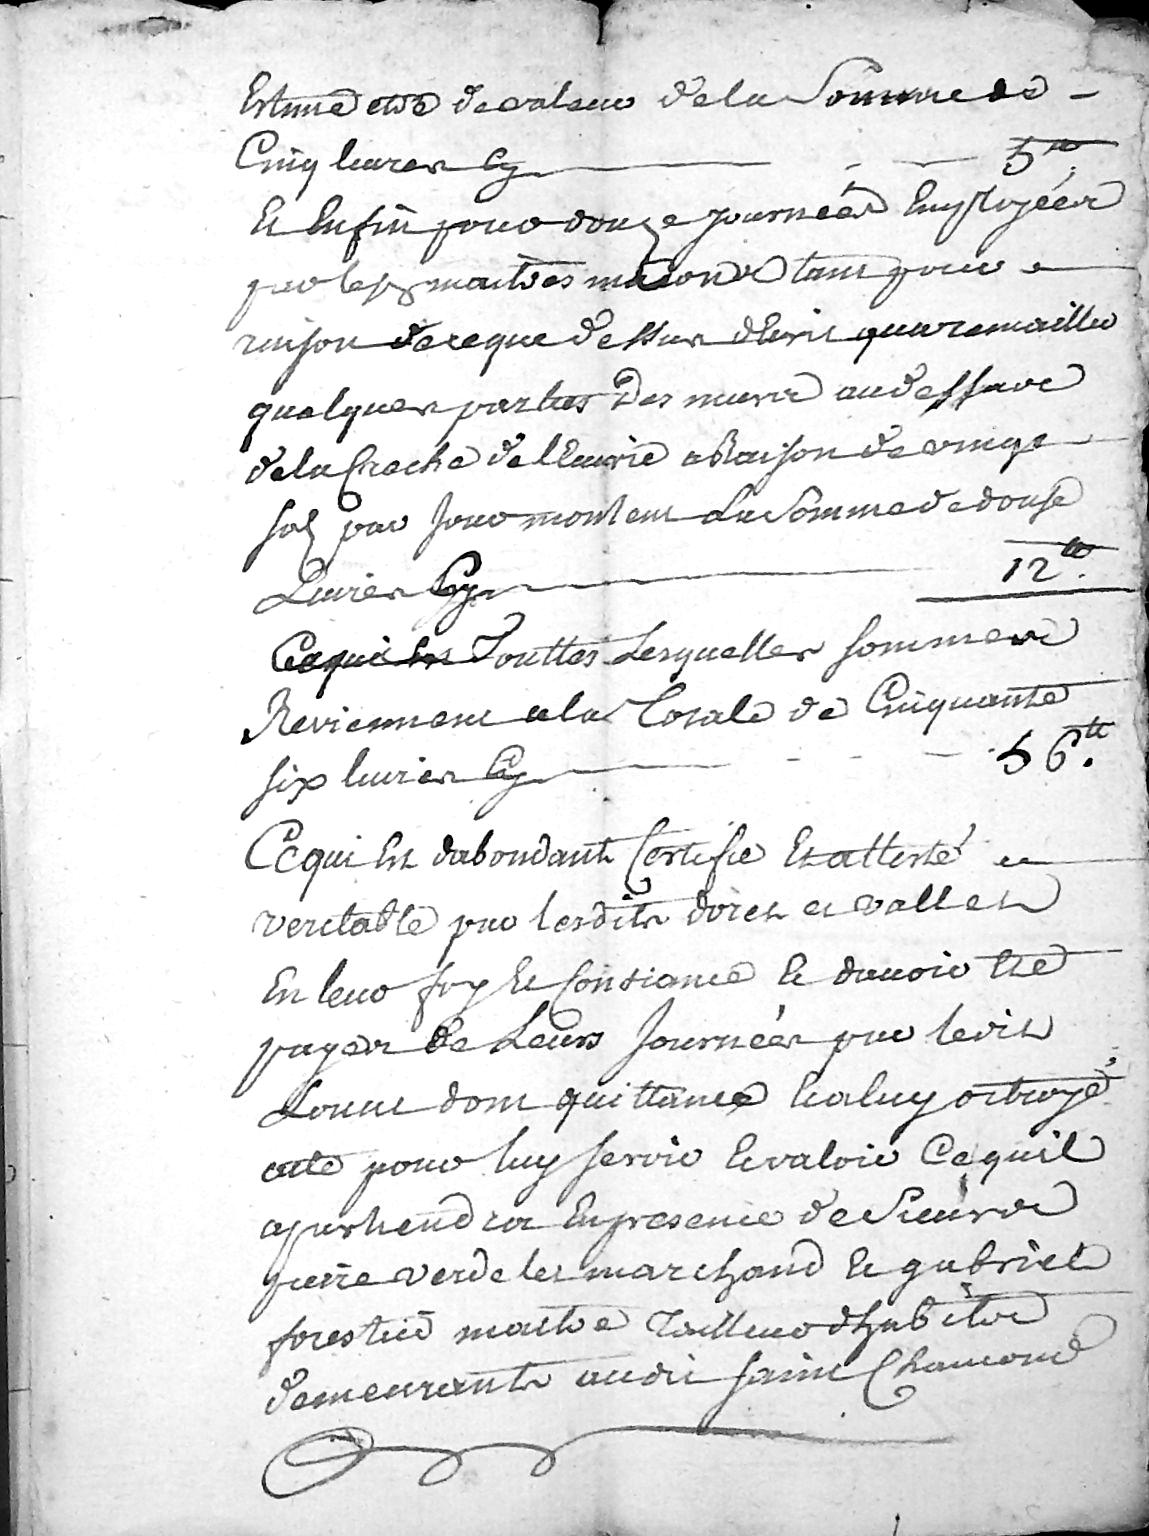 Estimé etre de valeur de la Somme de -
Cinq livres Cy 5 tt
Et Enfin pour douze journées Employées
par les maitres masons tant pour
raison de ce que dessus decrit que remailler
quelques parties Des murs au dessave
de la Creche de lEcurie a Raison de vingt
sols par Jour montent La Somme de douse
Livres Cy 12 tt.
Touttes Lesquelles sommes
Reviennent a la Totale de Cinquante
six livres Cy 56 tt.
Ce qui Est dabondant Certifie Et attesté
veritable par lesdits doret et vallet
En leur foy Et Consiance Et davoir Eté
payer de Leurs Journées par ledit
dont quittance Et a luy octroyé
acte pour luy servir Et valoir Ce quil
apartiendra En presence de Sieurs
pierre verdelet marchand Et gabriel
forestier maitre Tailleur dhabits
demeurants audit saint Chamond